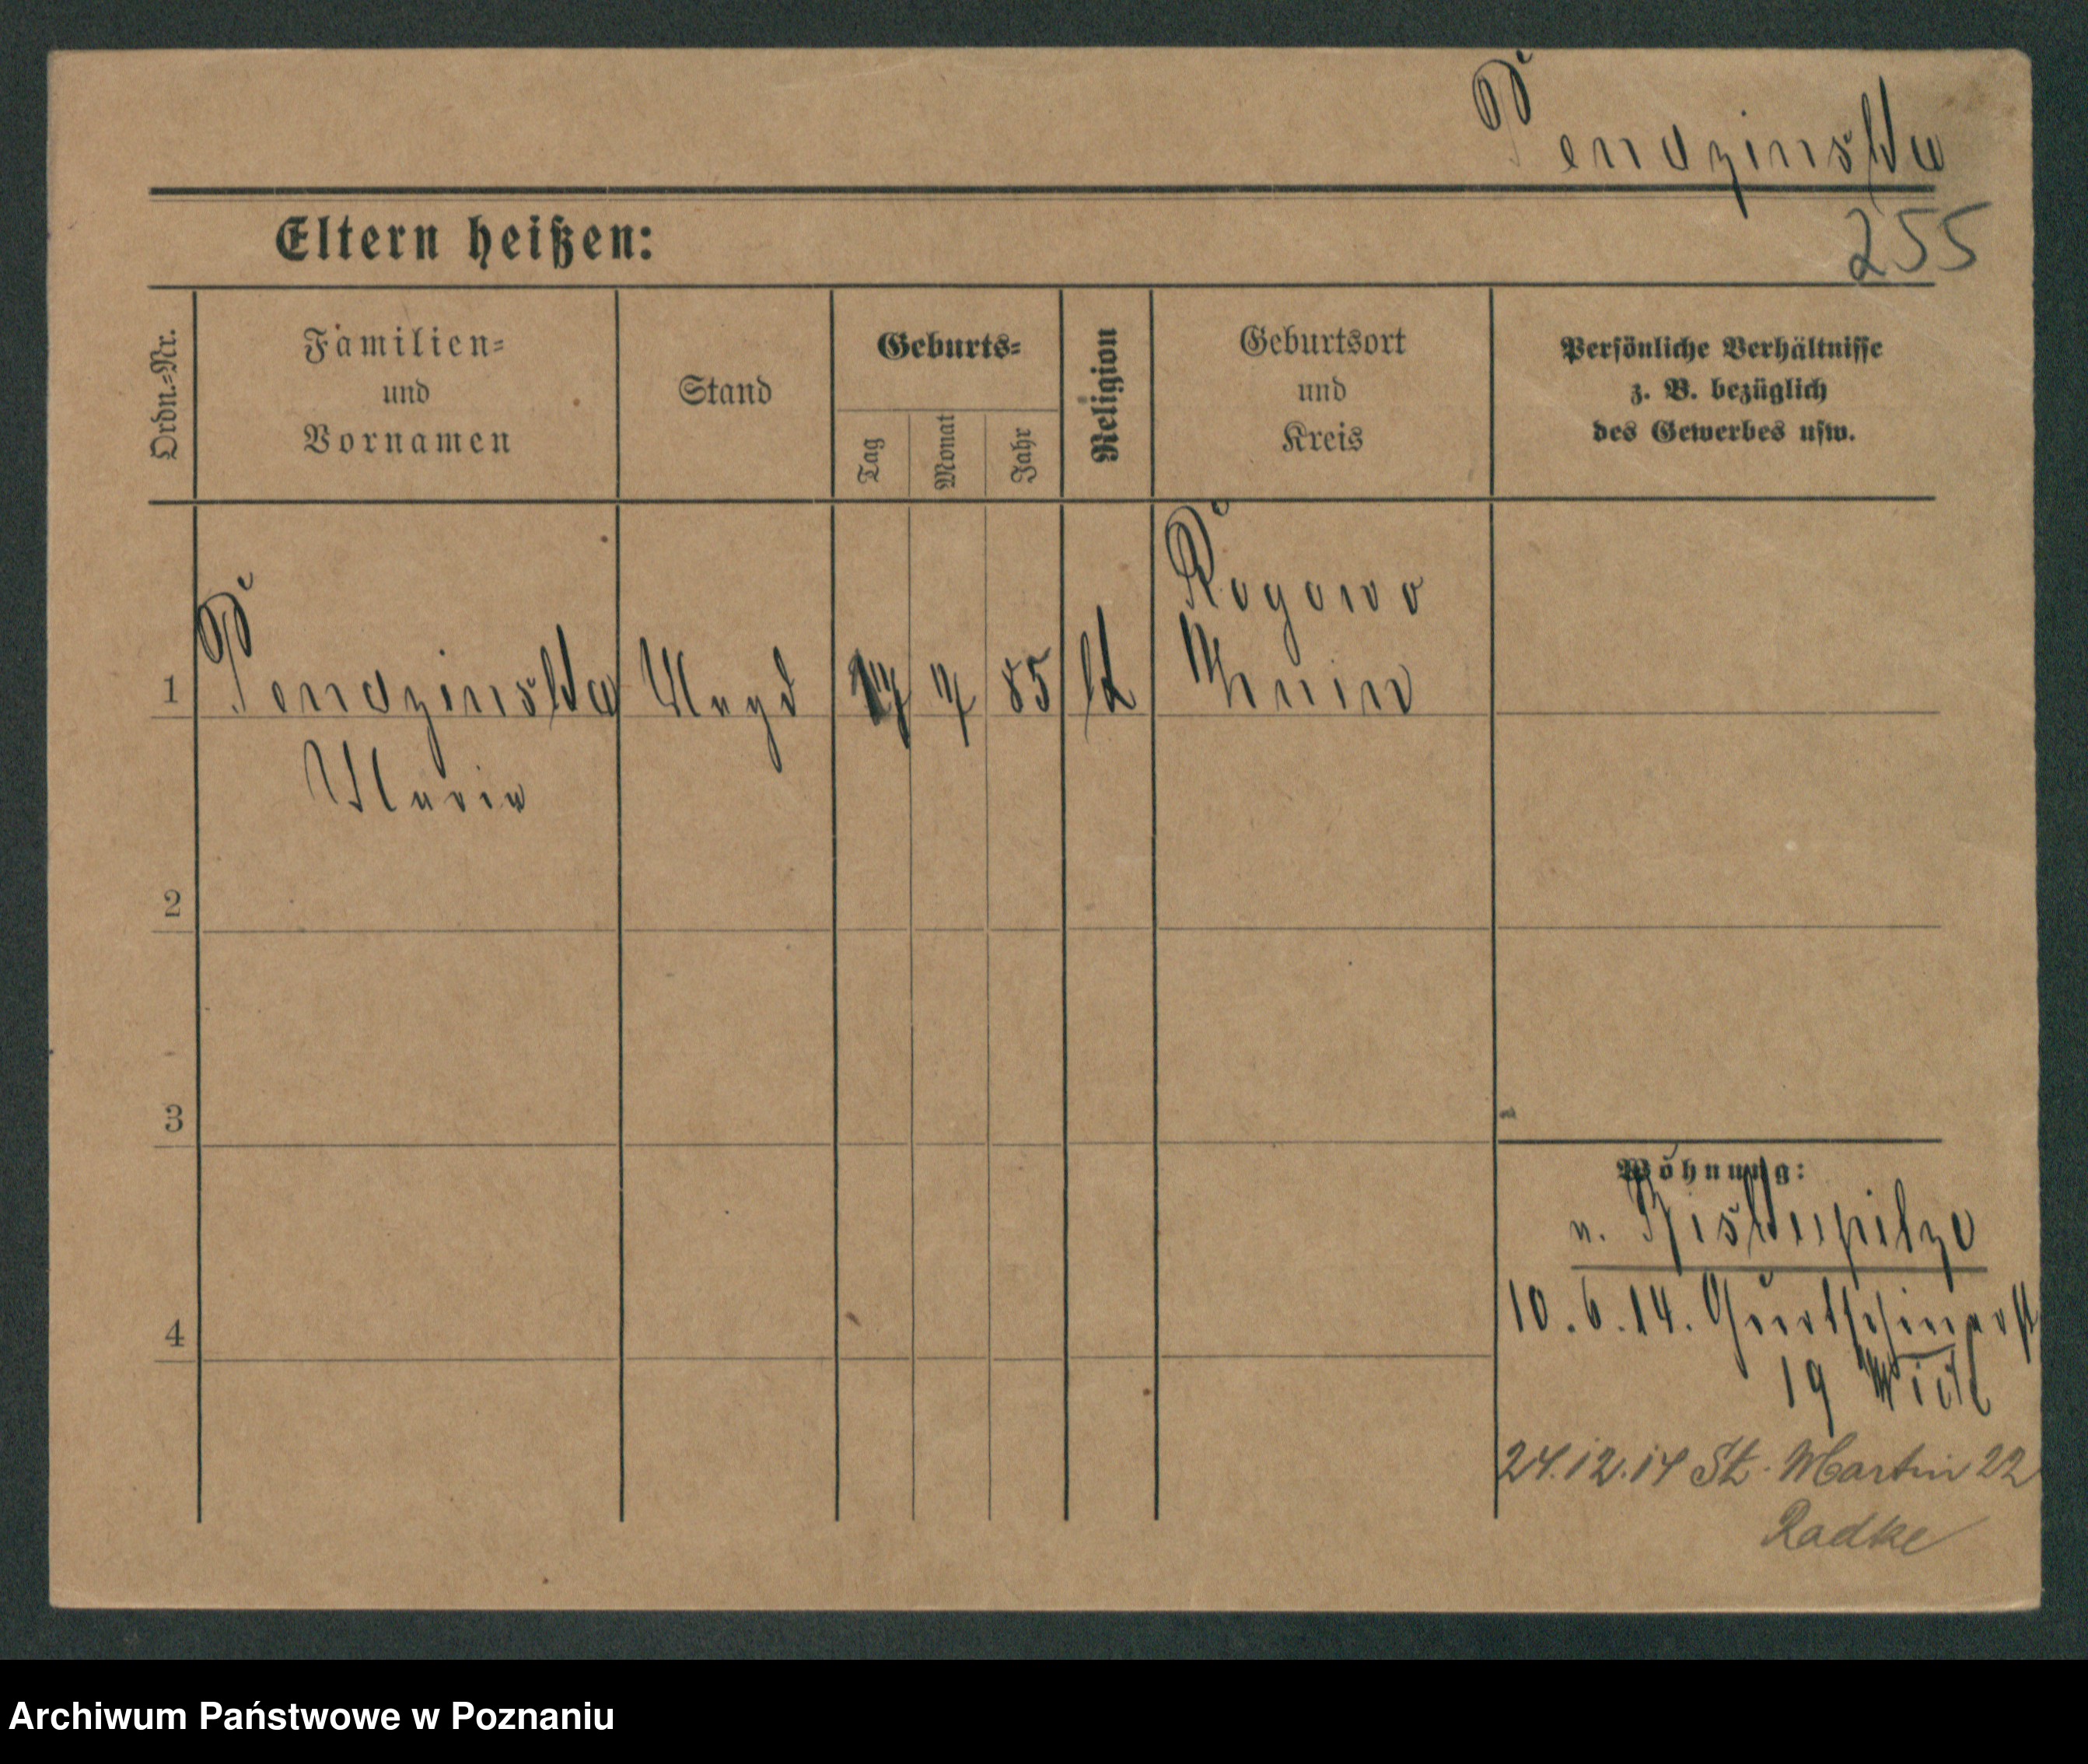 Pendzinska
255
Eltern heißen:
Ordn.=Nr.
Familien=
und
Vornamen
Stand
Geburts=
Tag
Monat
Jahr
Religion
Geburtsort
und
Kreis
Persönliche Verhältnisse
z. B. bezüglich
des Gewerbes usw.
1
Pendzinska
Maria
Magd
85
k
Rogowo
Znin
2
3
4
Wohnung:
v.
10.6.14.
19
24.12.14 St. Martin 22
Radke
Archiwum Państwowe w Poznaniu